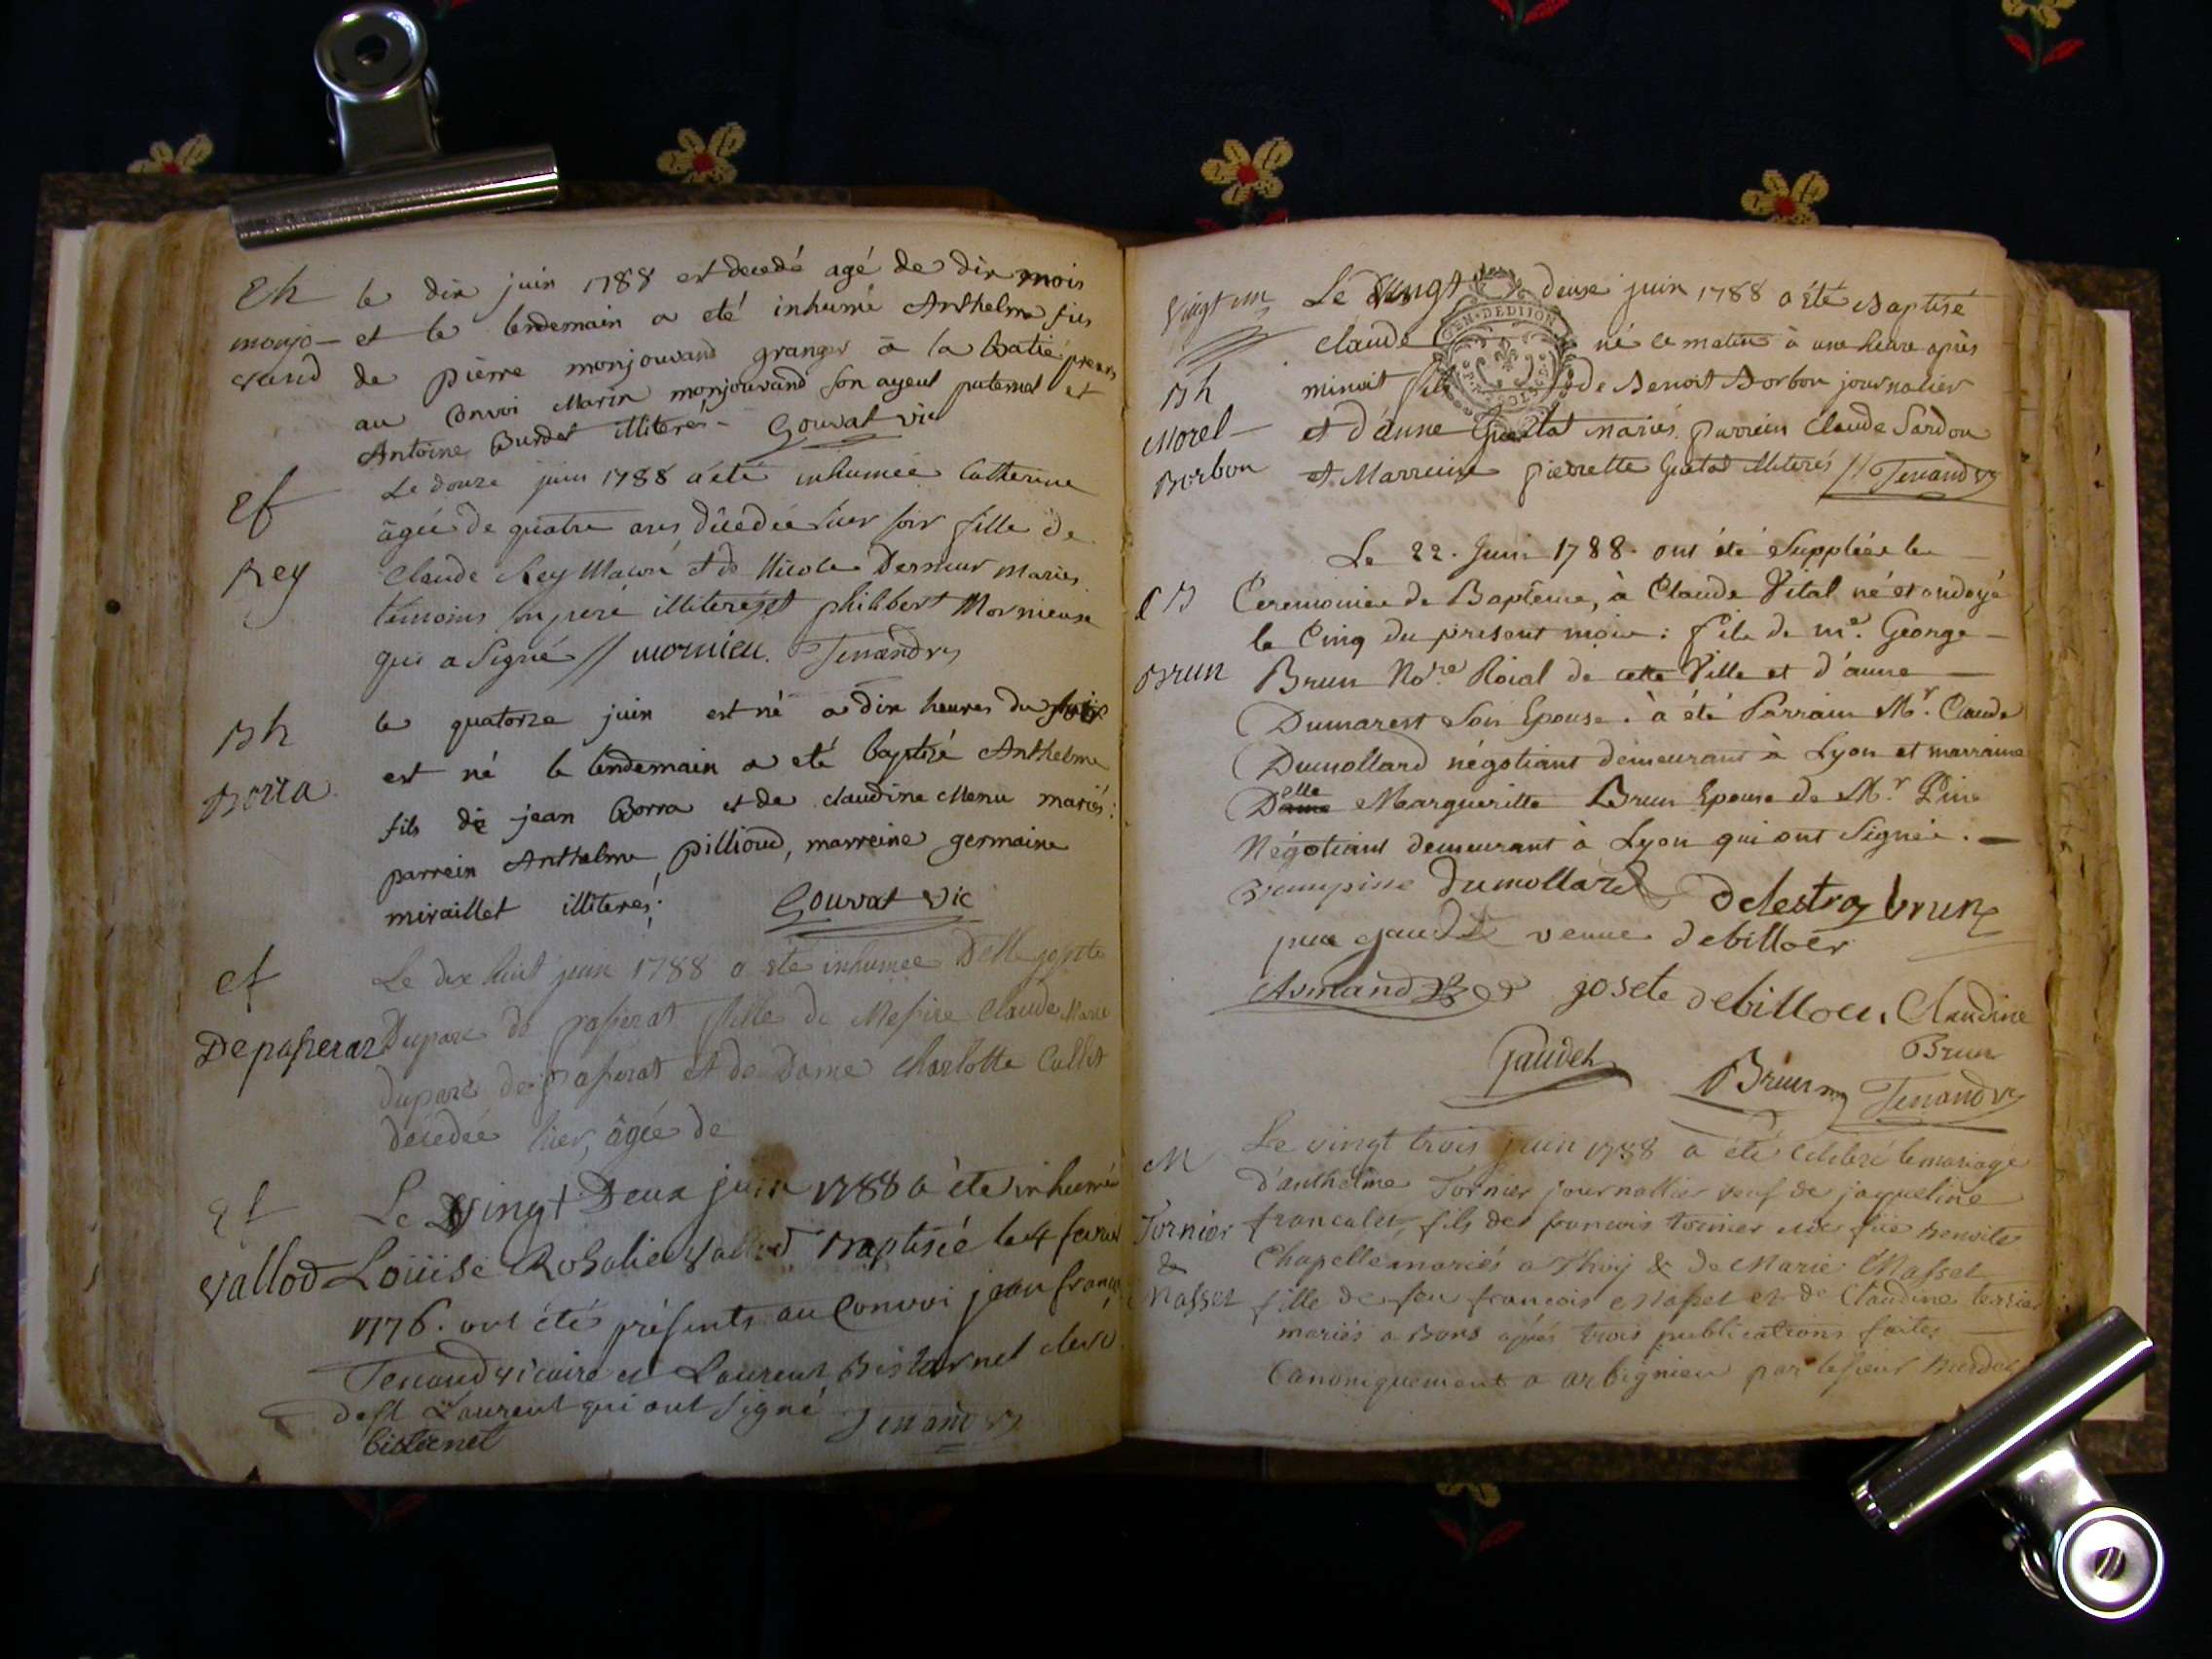 Eh
monjo-
vand
le dix juin 1788 est decedé agé de dix mois
et le lendemain a eté inhumé Anthelme fils
de pierre monjouvand granger à la batie presens
au convoi Marin monjouvand son ayeul paternel et
Antoine Burdet illiterés Gouvat vic
Ef
Rey
Le douze juin 1788 a été inhumée Catherine
âgée de quatre ans, décédée hier soir fille de
Claude Rey Macon et de Nicole Dermeur mariés
témoins son pere illiteré et philibert Mornieux
qui a signé // mornieu. Tenand v
Bh
Borra
le quatorze juin est né a dix heures du soir
est né le lendemain a eté baptisé Anthelme
fils de jean Borra et de claudine Menu mariés:
parrein Anthelme pillioud, marreine germaine
miraillet illiterés. Gouvat vic
ef
Depasserat
Le dix huit juin 1788 a été inhumée Delle
Duparc de passerat fille de Messire Claude Marie
duparc de passerat et de Dame Charlotte Cullet
décédée hier, âgée de
Ef
Vallod
Le Vingt Deux juin 1788 a été inhumée
Louise Rosalie Vallod Baptisée le 4 fevrier
1776. ont été présents au Convoi jean françois
Tenand vicaire et Laurent Bistarnet clerc
de St Laurent qui ont signé Tenand v
bisternet
Vingt un
Bh
Morel
Borbon
Le Vingt deuxe juin 1788 a été Baptisé
claude né ce matin à une heure après
minuit fils de Benoit Borbon journalier
et d'anne Guetat mariés. parrein Claude Sardou
et Marreine pierrette Guetat illiterés // Tenand v
GEN·DEDIION
Le 22. Juin 1788. ont été Supplées les
C B
Brun
Ceremonies de Baptême, à Claude Vital né et ondoyé
le Cinq du present mois: fils de me. George
Brun Nore Roial de cette Ville et d'anne
Dumarest Son Epouse. à été Parrain Mr. Claude
Dumollard négotiant demeurant à Lyon et marraine
elle
Dame Margueritte Brun Epouse de Mr Pine
Négotiant demeurant à Lyon qui ont Signée.
Brunpine dumollard Delestra brun
gaudet veuve debilloer
Armand josete debilloer. Claudine
Brun
Gaudet Brun Tenand v
M
Tornier
&
Masset
Le vingt trois juin 1788 a été Celebré le mariage
d'anthelme Tornier journallier veuf de jaqueline
francalet, fils de francois tornier et de füe Benoite
Chapelle mariés a Thoy & de Marie Masset
fille de feu francois Masset et de Claudine terrier
mariés a Bons après trois publications faites
Canoniquement a arbignieu par le sieur Burdet